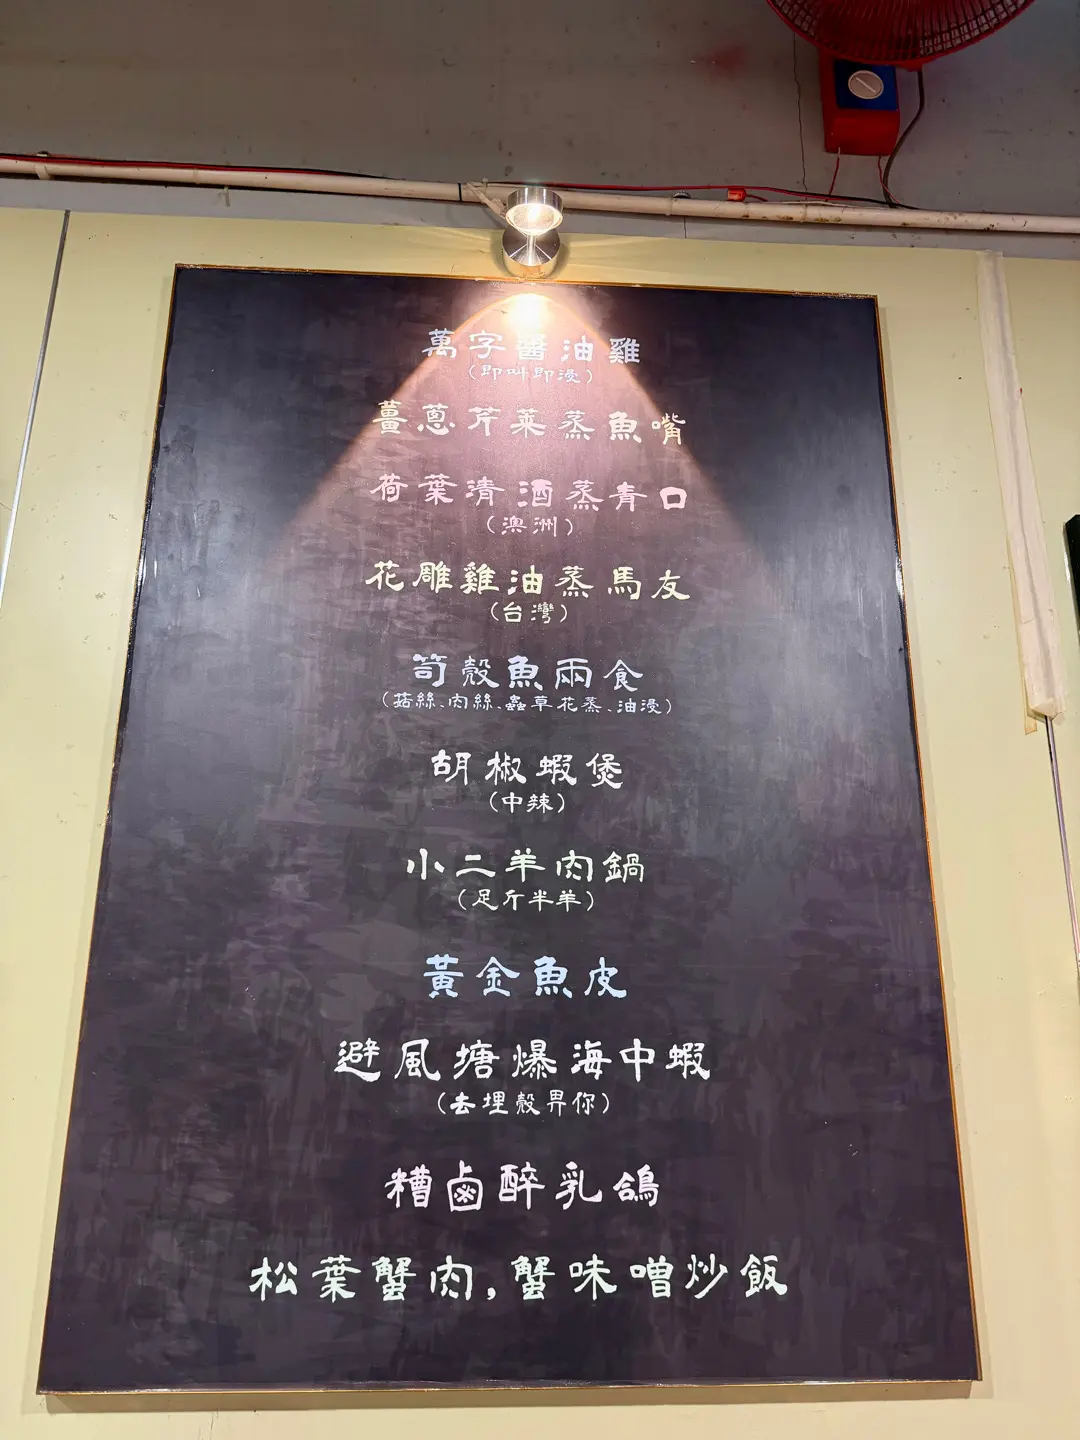 萬字醬油雞
(即叫即浸)
薑蔥芹菜蒸魚嘴
荷葉清酒蒸青口
(澳洲)
花雕雞油蒸馬友
(台灣)
筍殼魚兩食
(菇絲、肉絲、蟲草花蒸、油浸)
胡椒蝦煲
(中辣)
小二羊肉鍋
(足斤半羊)
黃金魚皮
避風塘爆海中蝦
(去埋殼畀你)
糟鹵醉乳鴿
松葉蟹肉,蟹味噌炒飯